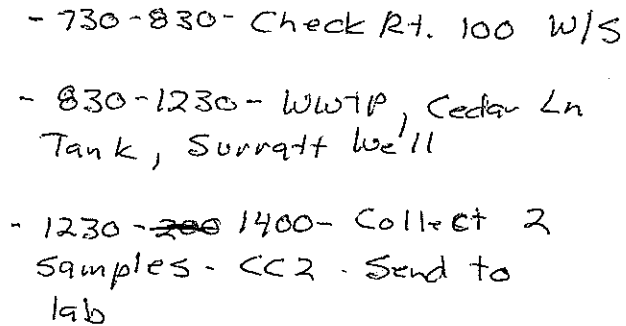 - 730-830- Check Rt. 100 W/S
- 830-1230- WWTP, Cedar Ln
Tank, Surratt Well
- 1230- 200 1400- Collect 2
samples - CC2 - Send to
lab